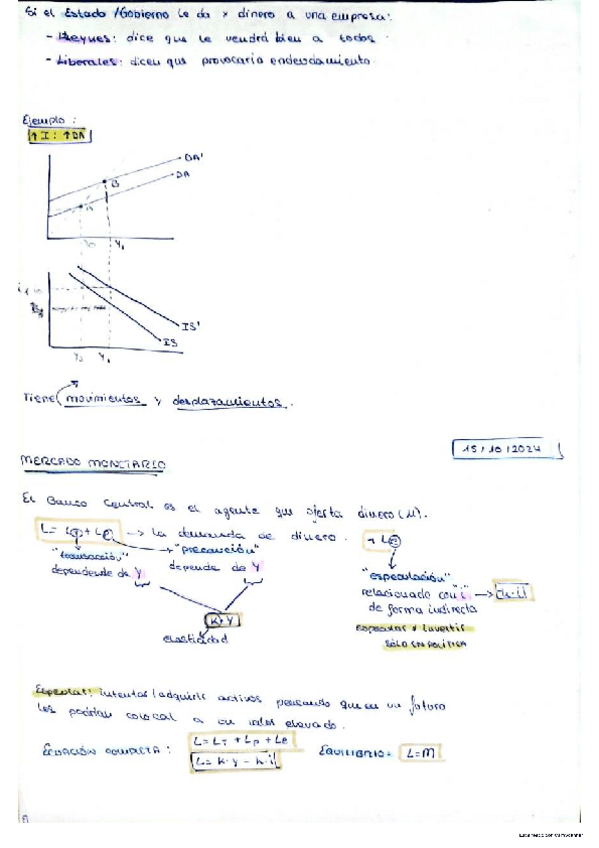 Si el Estado/Gobierno le da x dinero a una empresa:
- Keynes: dice que le vendrá bien a todos
- Liberales: dicen que provocaría endeudamiento.
Ejemplo:
↑I: ↑DA
DA'
DA
B
A
Y0 Y1
IS'
IS
Y0 Y1
Tiene movimientos y desplazamientos.
15/10/2024
MERCADO MONETARIO
El Banco Central es el agente que oferta dinero (M).
L = LT + LP → La demanda de dinero. + LE
"transacción" "precaución" "especulación"
depende de Y depende de Y relacionado con "i" → - h·i
de forma indirecta
K·Y
elasticidad
especular ≠ invertir
SÓLO EN POLÍTICA
Especular: intentar/adquirir activos pensando que en un futuro
los podrían colocar a un valor elevado.
ECUACIÓN COMPLETA: L = LT + LP + LE EQUILIBRIO = L=M
L = K·Y - h·i